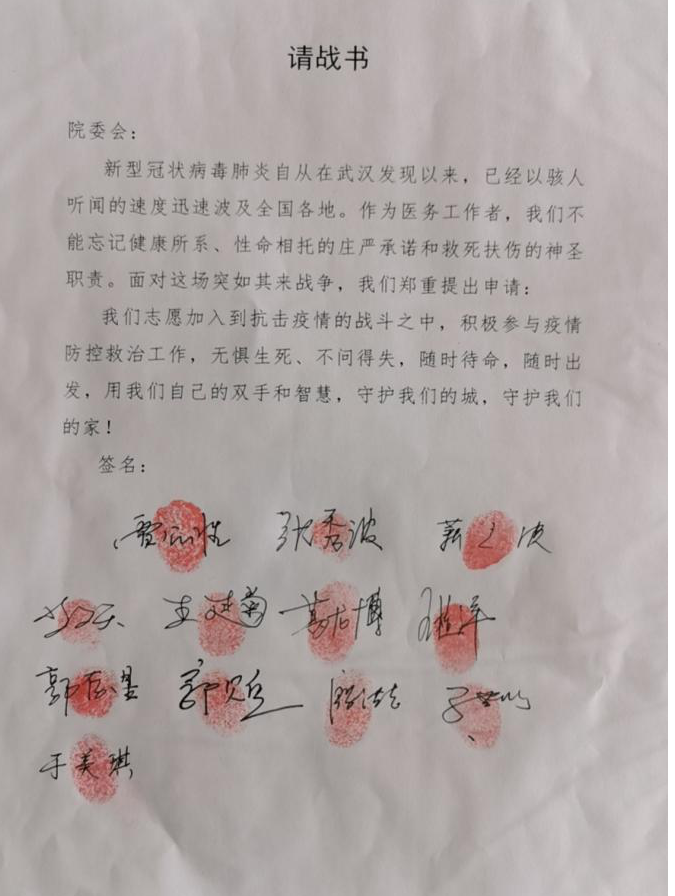 请战书
院委会：
新型冠状病毒肺炎自从在武汉发现以来，已经以骇人
听闻的速度迅速波及全国各地。作为医务工作者，我们不
能忘记健康所系、性命相托的庄严承诺和救死扶伤的神圣
职责。面对这场突如其来战争，我们郑重提出申请：
我们志愿加入到抗击疫情的战斗之中，积极参与疫情
防控救治工作，无惧生死、不问得失，随时待命，随时出
发，用我们自己的双手和智慧，守护我们的城，守护我们
的家！
签名：
张秀波
王建菊
于美琪